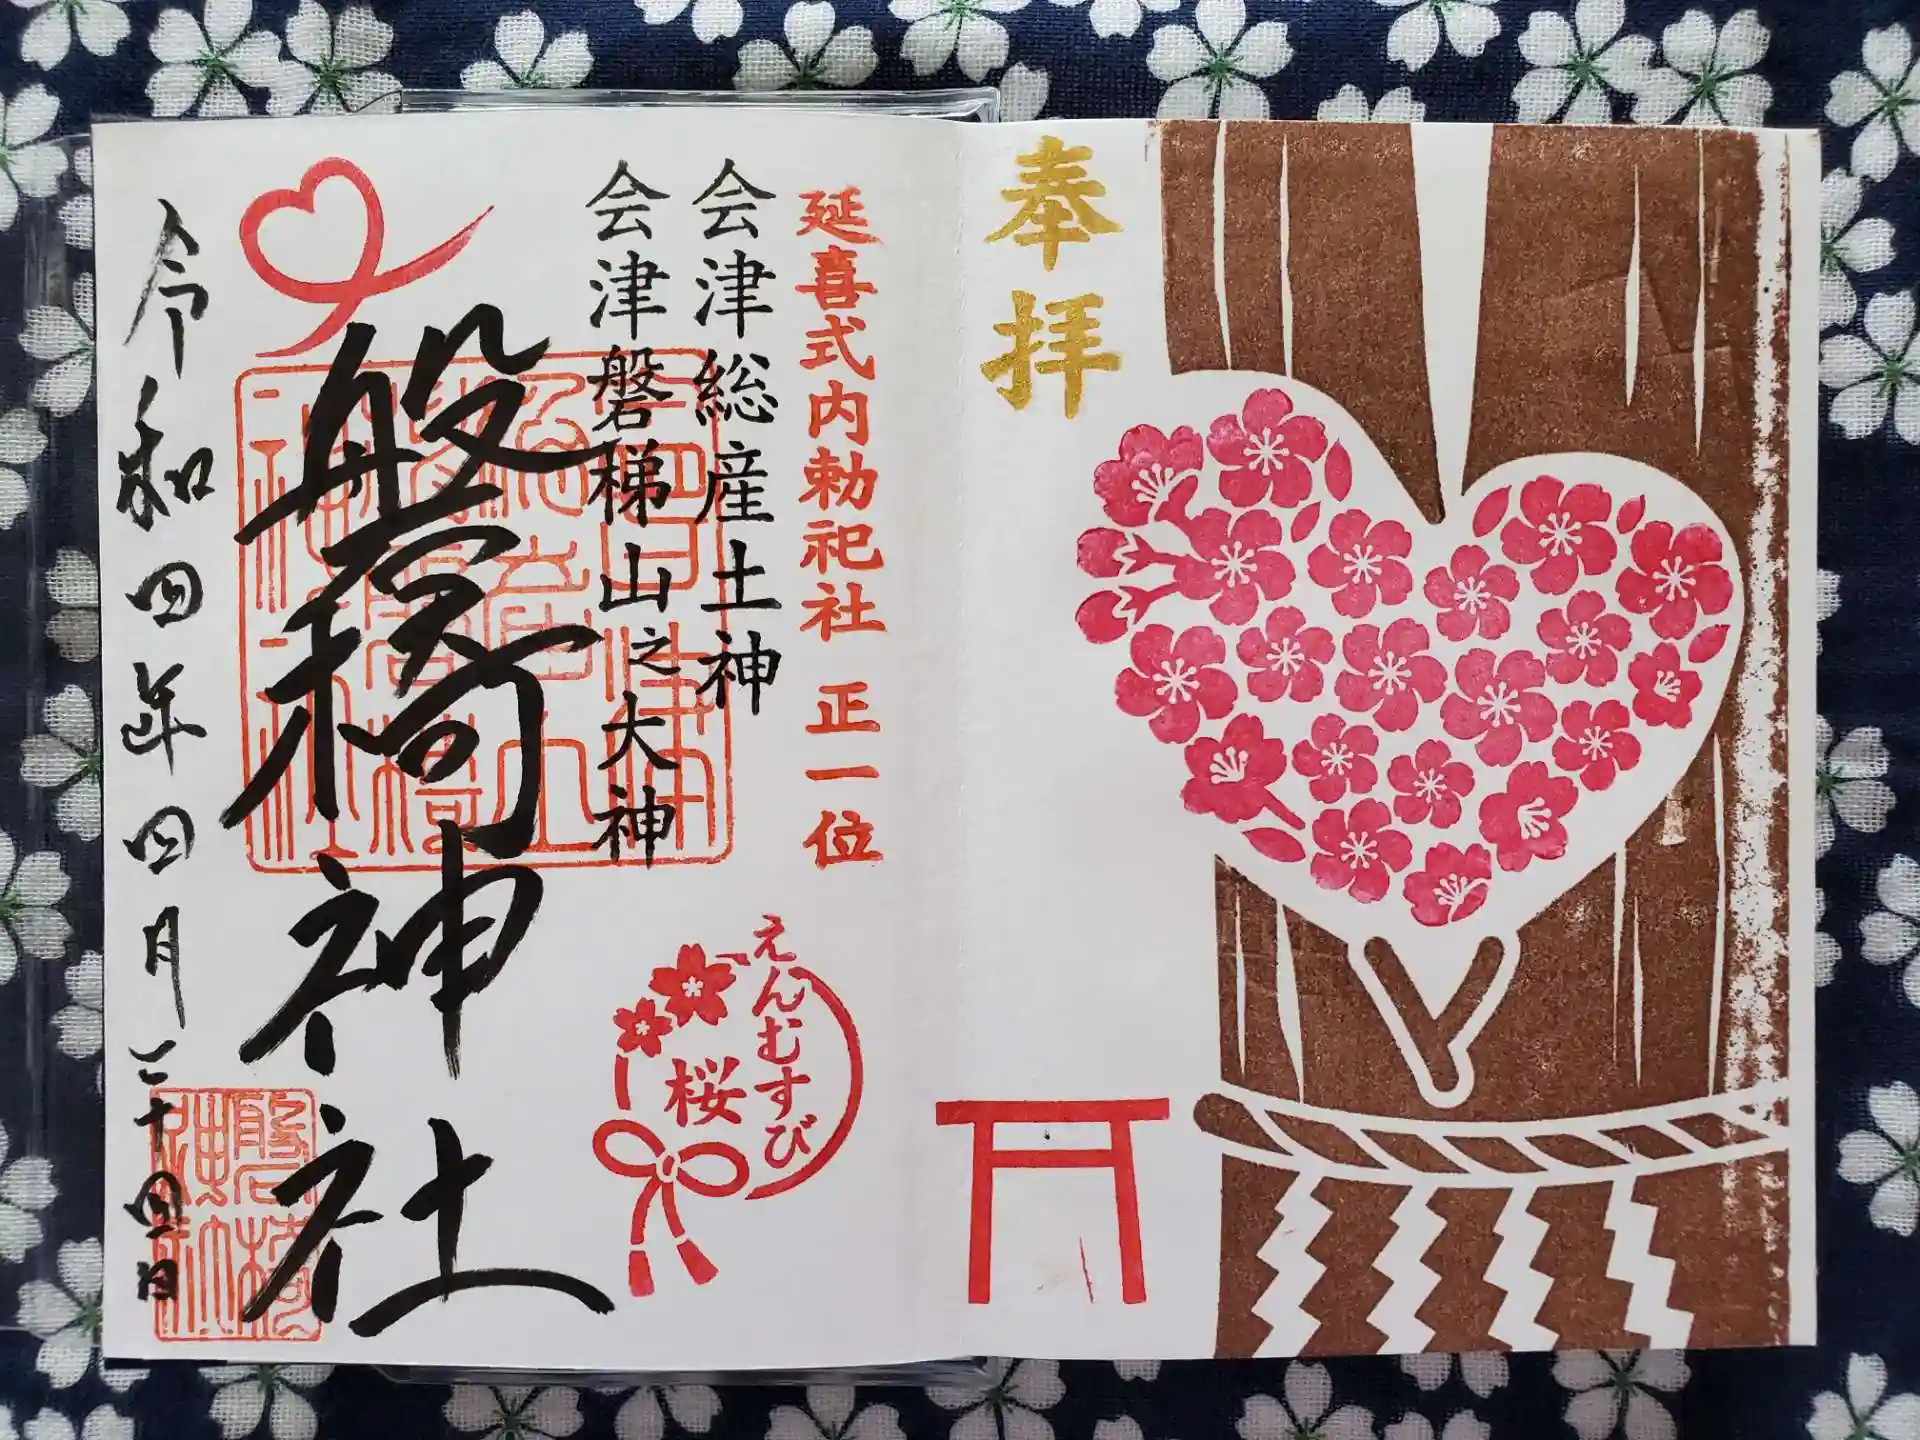 奉拝
延喜式内勅祀社 正一位
会津総産土神
会津磐梯山之大神
磐椅神社
令和四年四月二十四日
えんむすび
桜